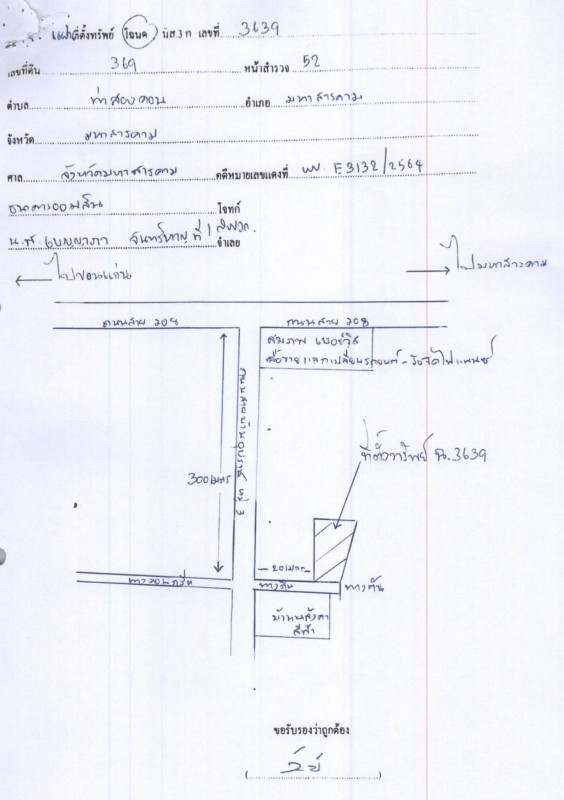 แผนที่ตั้งทรัพย์ โฉนด นส.3 ก เลขที่ 3639
เลขที่ดิน 369 หน้าสำรวจ 52
ตำบล ท่าสองคอน อำเภอ มหาสารคาม
จังหวัด มหาสารคาม
ศาล จังหวัดมหาสารคาม คดีหมายเลขแดงที่ ผบ. E3132/2564
ธนาคารออมสิน โจทก์
น.ส. เบญญาภา ที่ 1 จำเลย
ไปขอนแก่น ไปมหาสารคาม
ถนนสาย 208 ถนนสาย 208
สมภาพ เซอร์วิส
ซื้อขายแลกเปลี่ยนรถยนต์ - รับจัดไฟแนนซ์
ที่ตั้งทรัพย์ ฉ.3639
300 เมตร
20 เมตร
ทางคอนกรีต ทางดิน ทางตัน
บ้านหลังคา
สีฟ้า
ขอรับรองว่าถูกต้อง
(..........)